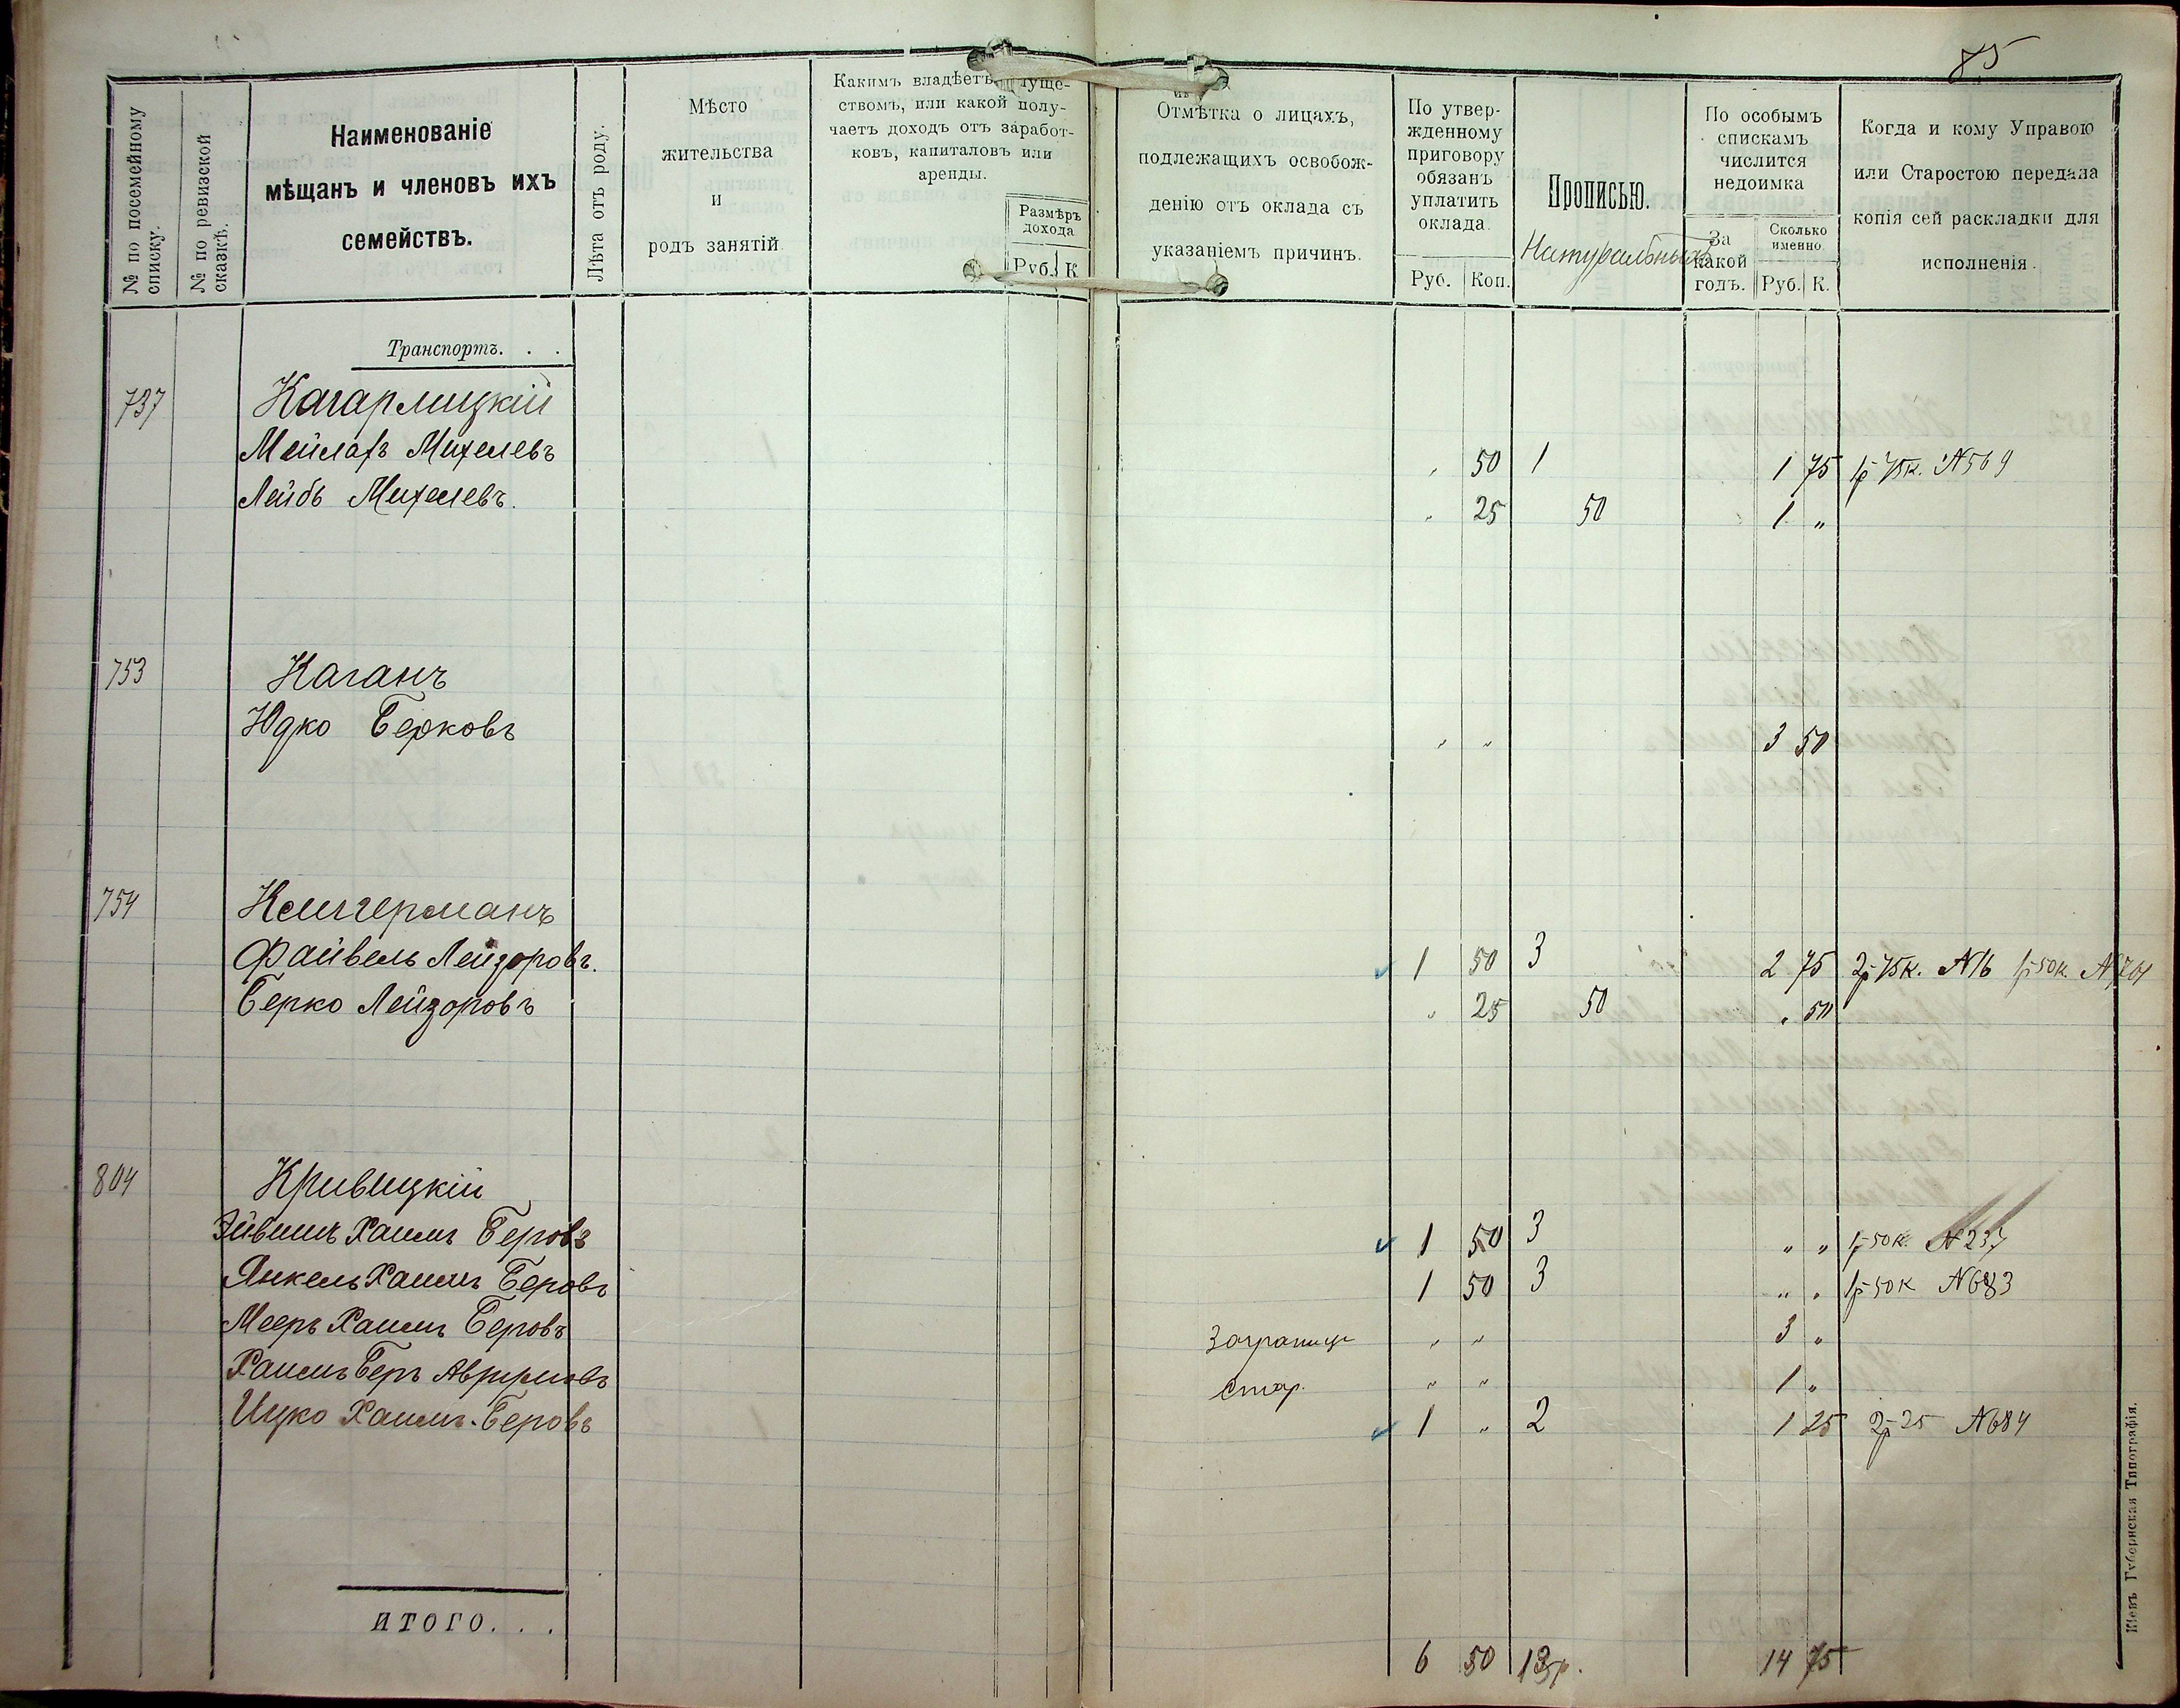 85
№ по посемейному списку.
№ по ревизской сказкѣ.
Наименованіе
мѣщанъ и членовъ ихъ
семействъ.
Лѣта отъ роду.
Мѣсто
жительства
и
родъ занятій
Какимъ владѣетъ
ствомъ, или какой полу-
чаетъ доходъ отъ заработ-
ковъ, капиталовъ или
аренды.
Размѣръ
дохода
Руб. К
Отмѣтка о лицахъ,
подлежащихъ освобож-
денію отъ оклада съ
указаніемъ причинъ.
По утвер-
жденному
приговору
обязанъ
уплатить
оклада
Руб. Коп.
Прописью.
Натуральныхъ
По особымъ
спискамъ
числится
недоимка
За
какой
годъ.
Сколько
именно
Руб. К.
Когда и кому Управою
или Старостою передана
копія сей раскладки для
исполненія.
Транспортъ. . .
737 Кагарлицкій
Мейлахъ Михелевъ „ 50 1 1 75 1р 75к. №569
Лейбъ Михелевъ. „ 25 50 1 „
753 Каганъ
Юдко Берковъ „ „ 3 50
754 Клигерманъ
Файвель Лейзоровъ. 1 50 3 2 75 2р 75к. №16 1р 50к. №704
Берко Лейзоровъ „ 25 50 „ 50
804 Кривицкій
Эйвишъ Хаимъ Беровъ 1 50 3 „ „ 1р 50к. №237
Янкель Хаимъ Беровъ 1 50 3 „ „ 1р 50к №683
Мееръ Хаимъ Беровъ Заграницу „ „ 3 „
Хаимъ Беръ Аврумовъ стар. „ „ 1 „
Ицко Хаимъ-Беровъ 1 „ 2 1 25 2р 25 №684
ИТОГО. . .
6 50 13р. 14 75
Кіевъ Губернская Типографія.